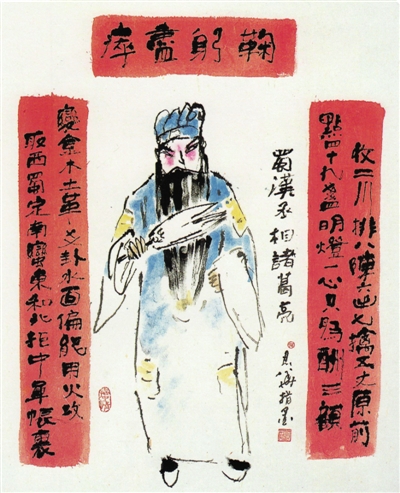 鞠躬盡瘁
收二川排八陣六出七擒五丈原前
點四十九盞明燈一心只為酬三顧
取西蜀定南蠻東和北拒中軍帳裏
變金木土革爻卦水面偏能用火攻
蜀漢丞相諸葛亮
指墨